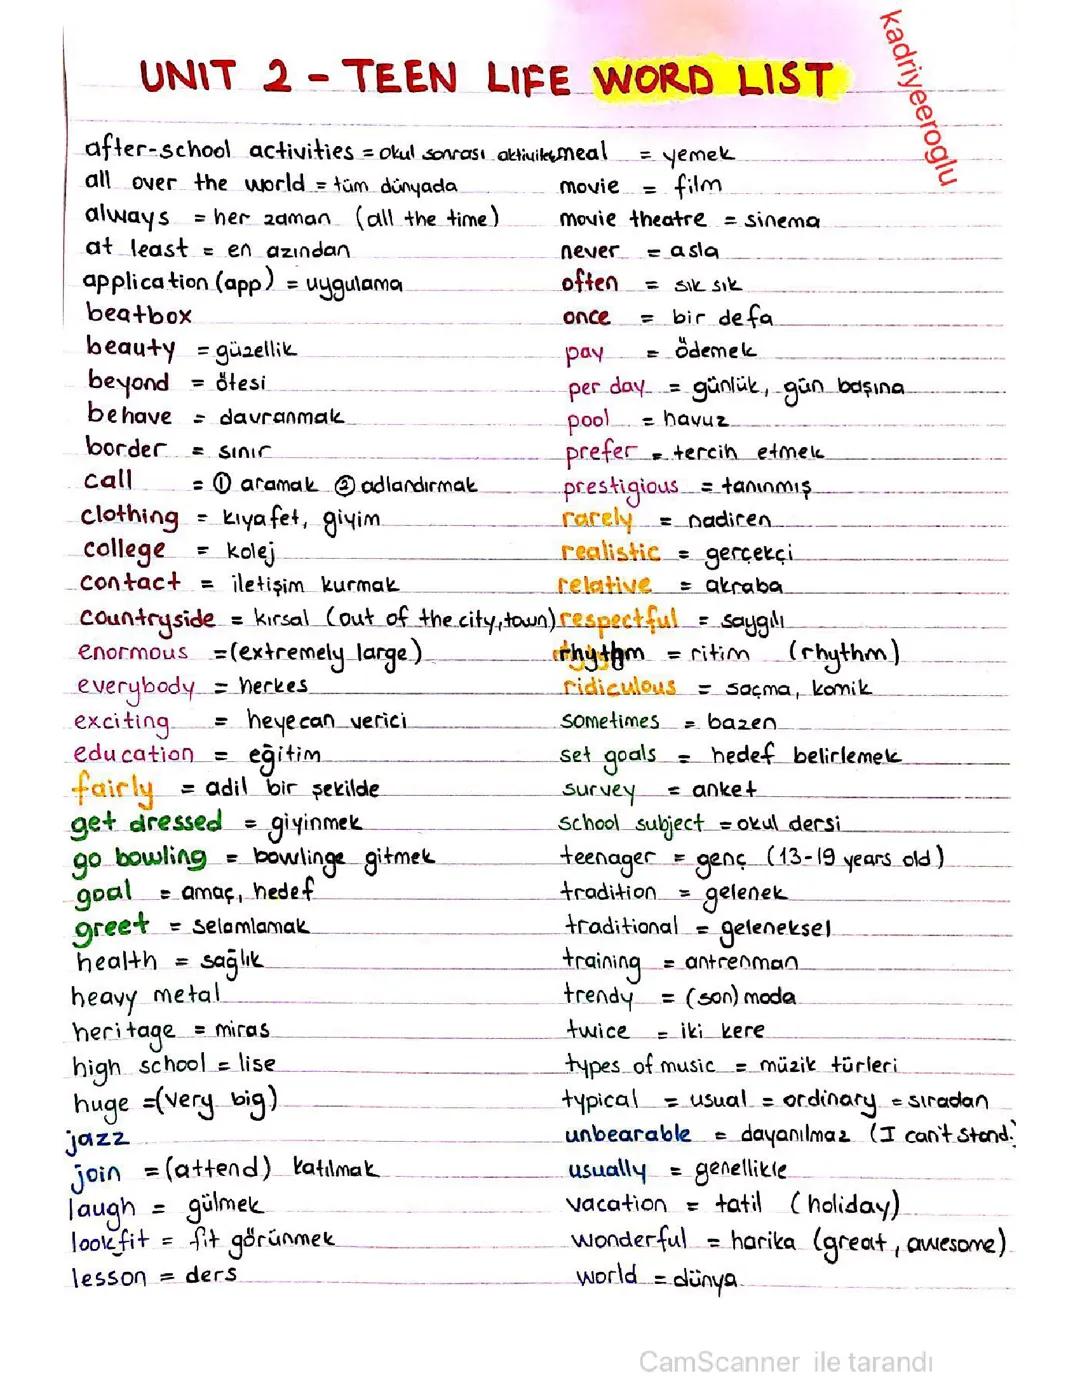 UNIT 2 - TEEN LIFE WORD LIST
kadriyeeroglu
after-school activities = okul sonrası aktivite
all over the world = tüm dünyada
always = her zaman (all the time)
at least = en azından
application (app) = uygulama
beatbox
beauty = güzellik
beyond = ötesi
behave = davranmak
border = sınır
call = ① aramak ② adlandırmak
clothing = kıyafet, giyim
college = kolej
contact = iletişim kurmak
countryside = kırsal (out of the city, town)
enormous = (extremely large)
everybody = herkes
exciting = heyecan verici
education = eğitim
fairly = adil bir şekilde
get dressed = giyinmek
go bowling = bowlinge gitmek
goal = amaç, hedef
greet = selamlamak
health = sağlık
heavy metal
heritage = miras
high school = lise
huge = (very big)
jazz
join = (attend) katılmak
laugh = gülmek
look fit = fit görünmek
lesson = ders
meal = yemek
movie = film
movie theatre = sinema
never = asla
often = sık sık
once = bir defa
pay = ödemek
per day = günlük, gün başına
pool = havuz
prefer = tercih etmek
prestigious = tanınmış
rarely = nadiren
realistic = gerçekçi
relative = akraba
respectful = saygılı
rhythm = ritim (rhythm)
ridiculous = saçma, komik
sometimes = bazen
set goals = hedef belirlemek
survey = anket
school subject = okul dersi
teenager = genç (13-19 years old)
tradition = gelenek
traditional = geleneksel
training = antrenman
trendy = (son) moda
twice = iki kere
types of music = müzik türleri
typical = usual = ordinary = sıradan
unbearable = dayanılmaz (I can't stand.)
usually = genellikle
vacation = tatil (holiday)
wonderful = harika (great, awesome)
world = dünya
CamScanner ile tarandı